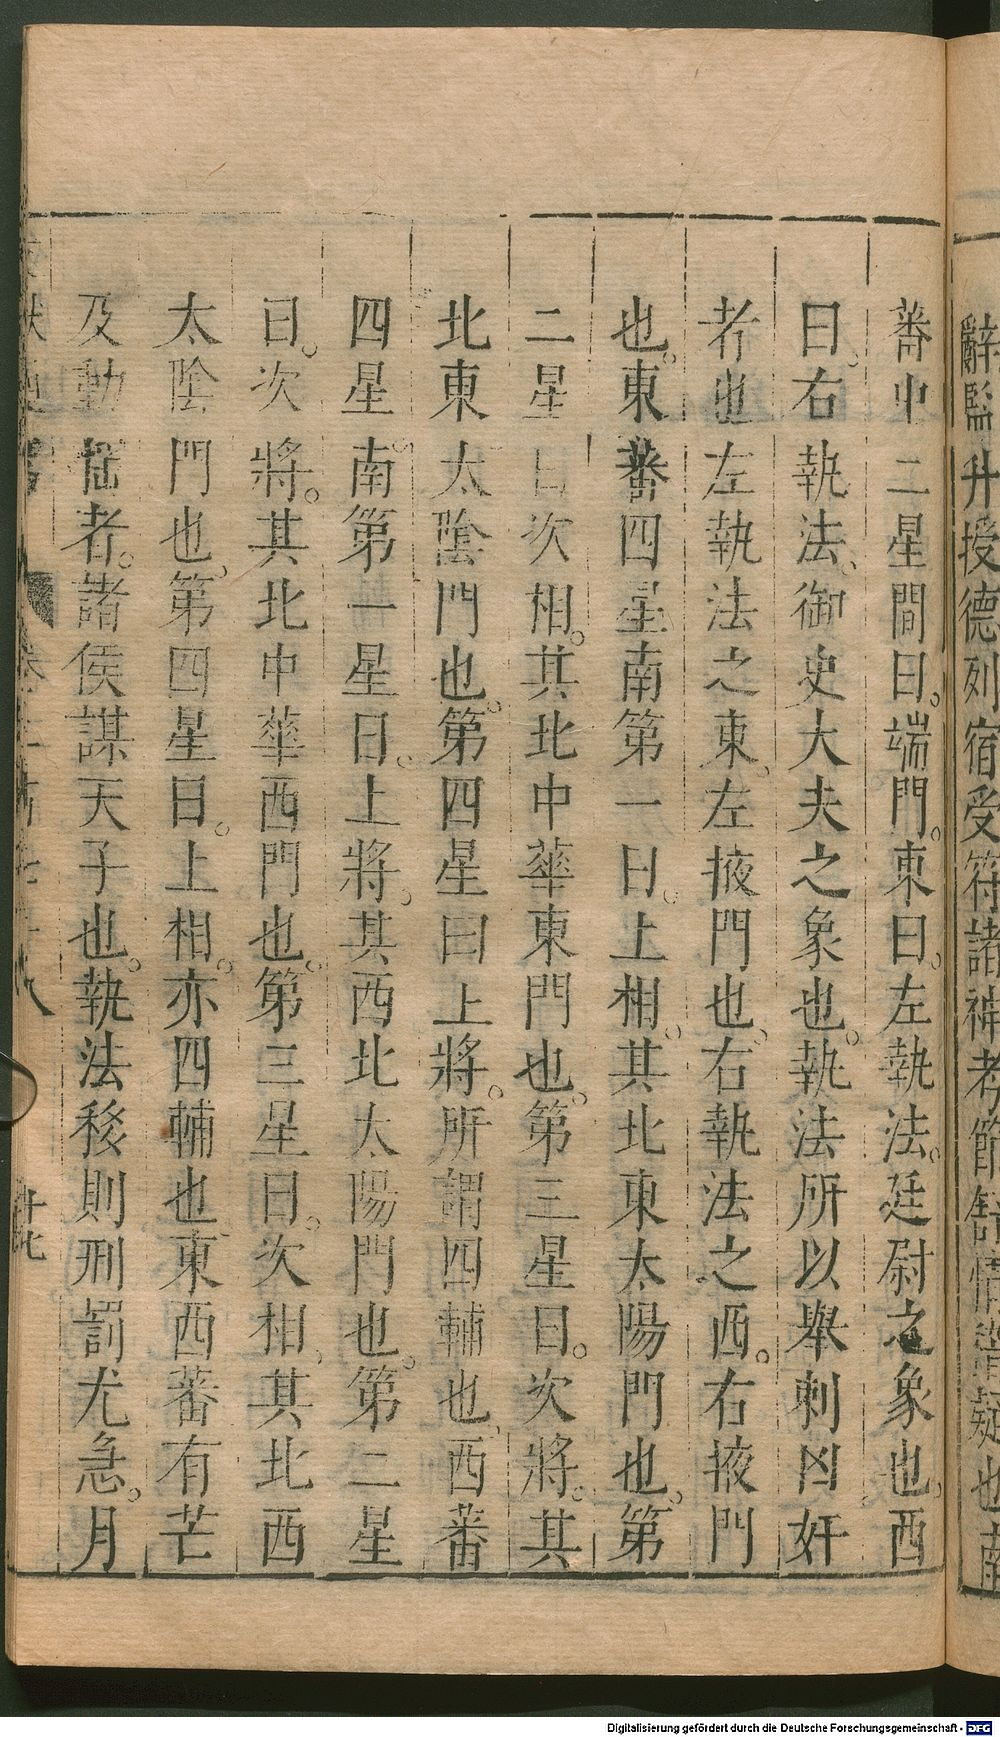 辭監升授德列宿受符諸神考節舒情
疑也南
蕃中二星間曰。端門。東曰。左執法。廷尉之象也。西
曰。右執法。御史大夫之象也。執法所以舉刺凶奸
者也左執法之東。左掖門也。右執法之西。右掖門
也。東蕃四星南第一曰。上相。其北東太陽門也。第
二星曰次相。其北中華東門也。第三星曰。次將。其
北東太陰門也。第四星曰上將。所謂四輔也。西蕃
四星。南第一星曰。上將。其西北太陽門也。第二星
曰。次將。其北中華西門也。第三星曰。次相。其北西
太陰門也。第四星曰。上相。亦四輔也。東西蕃有芒
及動搖者。諸侯謀天子也。執法移則刑罰尤急。月
廿七
Digitalisierung gefördert durch die Deutsche Forschungsgemeinschaft - DFG